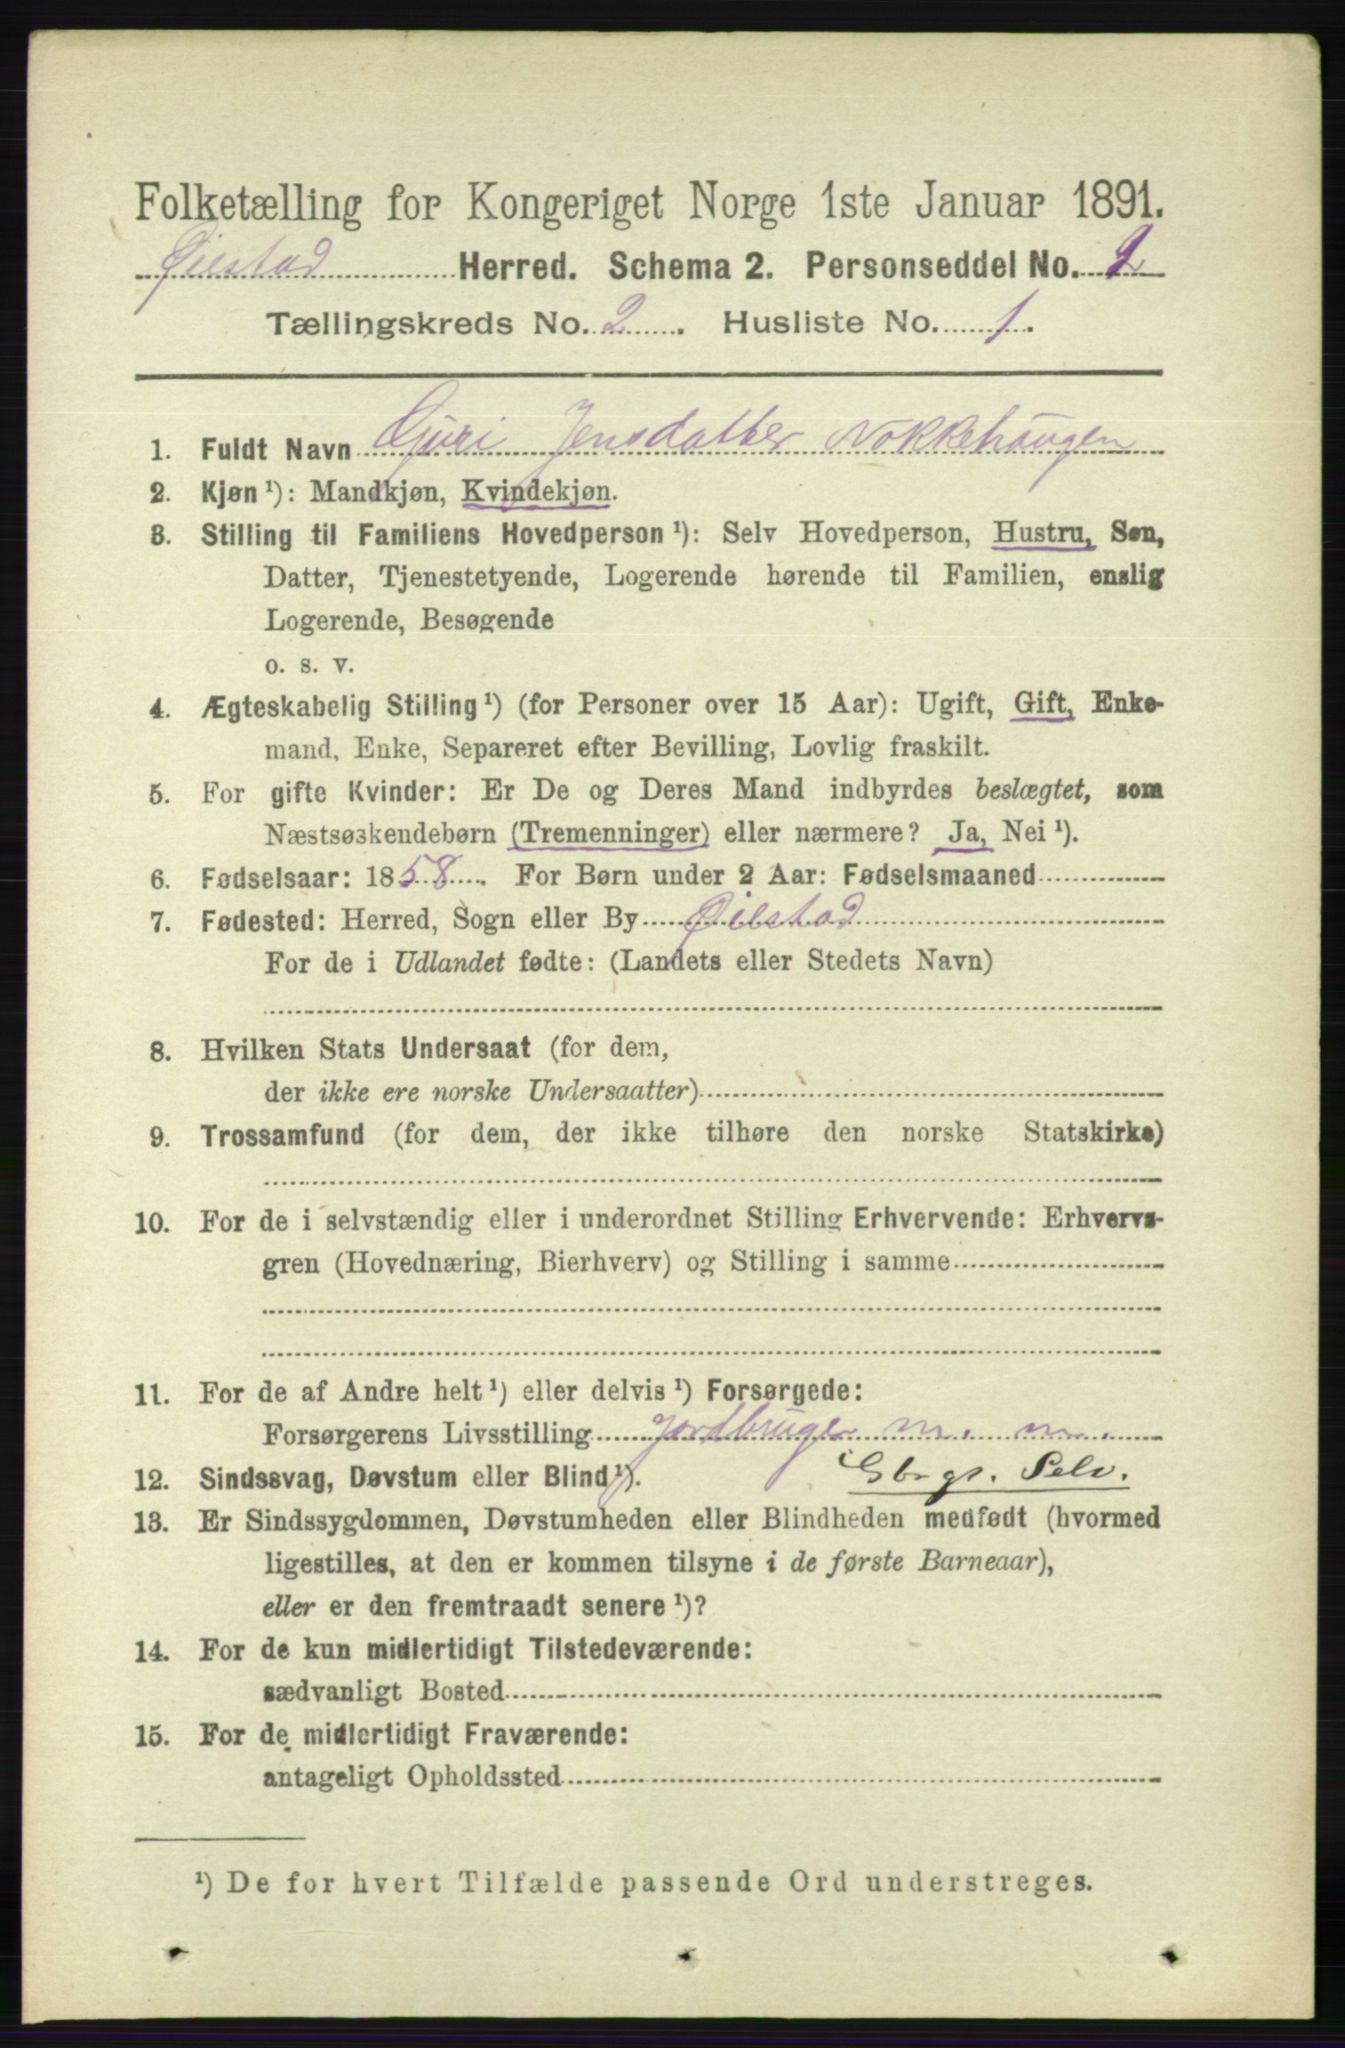 Folketælling for Kongeriget Norge 1ste Januar 1891.
Øiestad Herred. Schema 2. Personseddel No. 2
Tællingskreds No. 2. Husliste No. 1.
1. Fuldt Navn Guri Jensdatter Nokkehaugen
2. Kjøn ¹): Mandkjøn, Kvindekjøn.
3. Stilling til Familiens Hovedperson ¹): Selv Hovedperson, Hustru, Søn,
Datter, Tjenestetyende, Logerende hørende til Familien, enslig
Logerende, Besøgende
o. s. v.
4. Ægteskabelig Stilling ¹) (for Personer over 15 Aar): Ugift, Gift, Enke-
mand, Enke, Separeret efter Bevilling, Lovlig fraskilt.
5. For gifte Kvinder: Er De og Deres Mand indbyrdes beslægtet, som
Næstsøskendebørn (Tremenninger) eller nærmere? Ja, Nei ¹).
6. Fødselsaar: 1858. For Børn under 2 Aar: Fødselsmaaned
7. Fødested: Herred, Sogn eller By Øiestad
For de i Udlandet fødte: (Landets eller Stedets Navn)
8. Hvilken Stats Undersaat (for dem,
der ikke ere norske Undersaatter)
9. Trossamfund (for dem, der ikke tilhøre den norske Statskirke)
10. For de i selvstændig eller i underordnet Stilling Erhvervende: Erhvervs-
gren (Hovednæring, Bierhverv) og Stilling i samme
11. For de af Andre helt ¹) eller delvis ¹) Forsørgede:
Forsørgerens Livsstilling Jordbruger m. m.
12. Sindssvag, Døvstum eller Blind ¹). Gbrgs. Selv.
13. Er Sindssygdommen, Døvstumheden eller Blindheden medfødt (hvormed
ligestilles, at den er kommen tilsyne i de første Barneaar),
eller er den fremtraadt senere ¹)?
14. For de kun midlertidigt Tilstedeværende:
sædvanligt Bosted
15. For de midlertidigt Fraværende:
antageligt Opholdssted
¹) De for hvert Tilfælde passende Ord understreges.